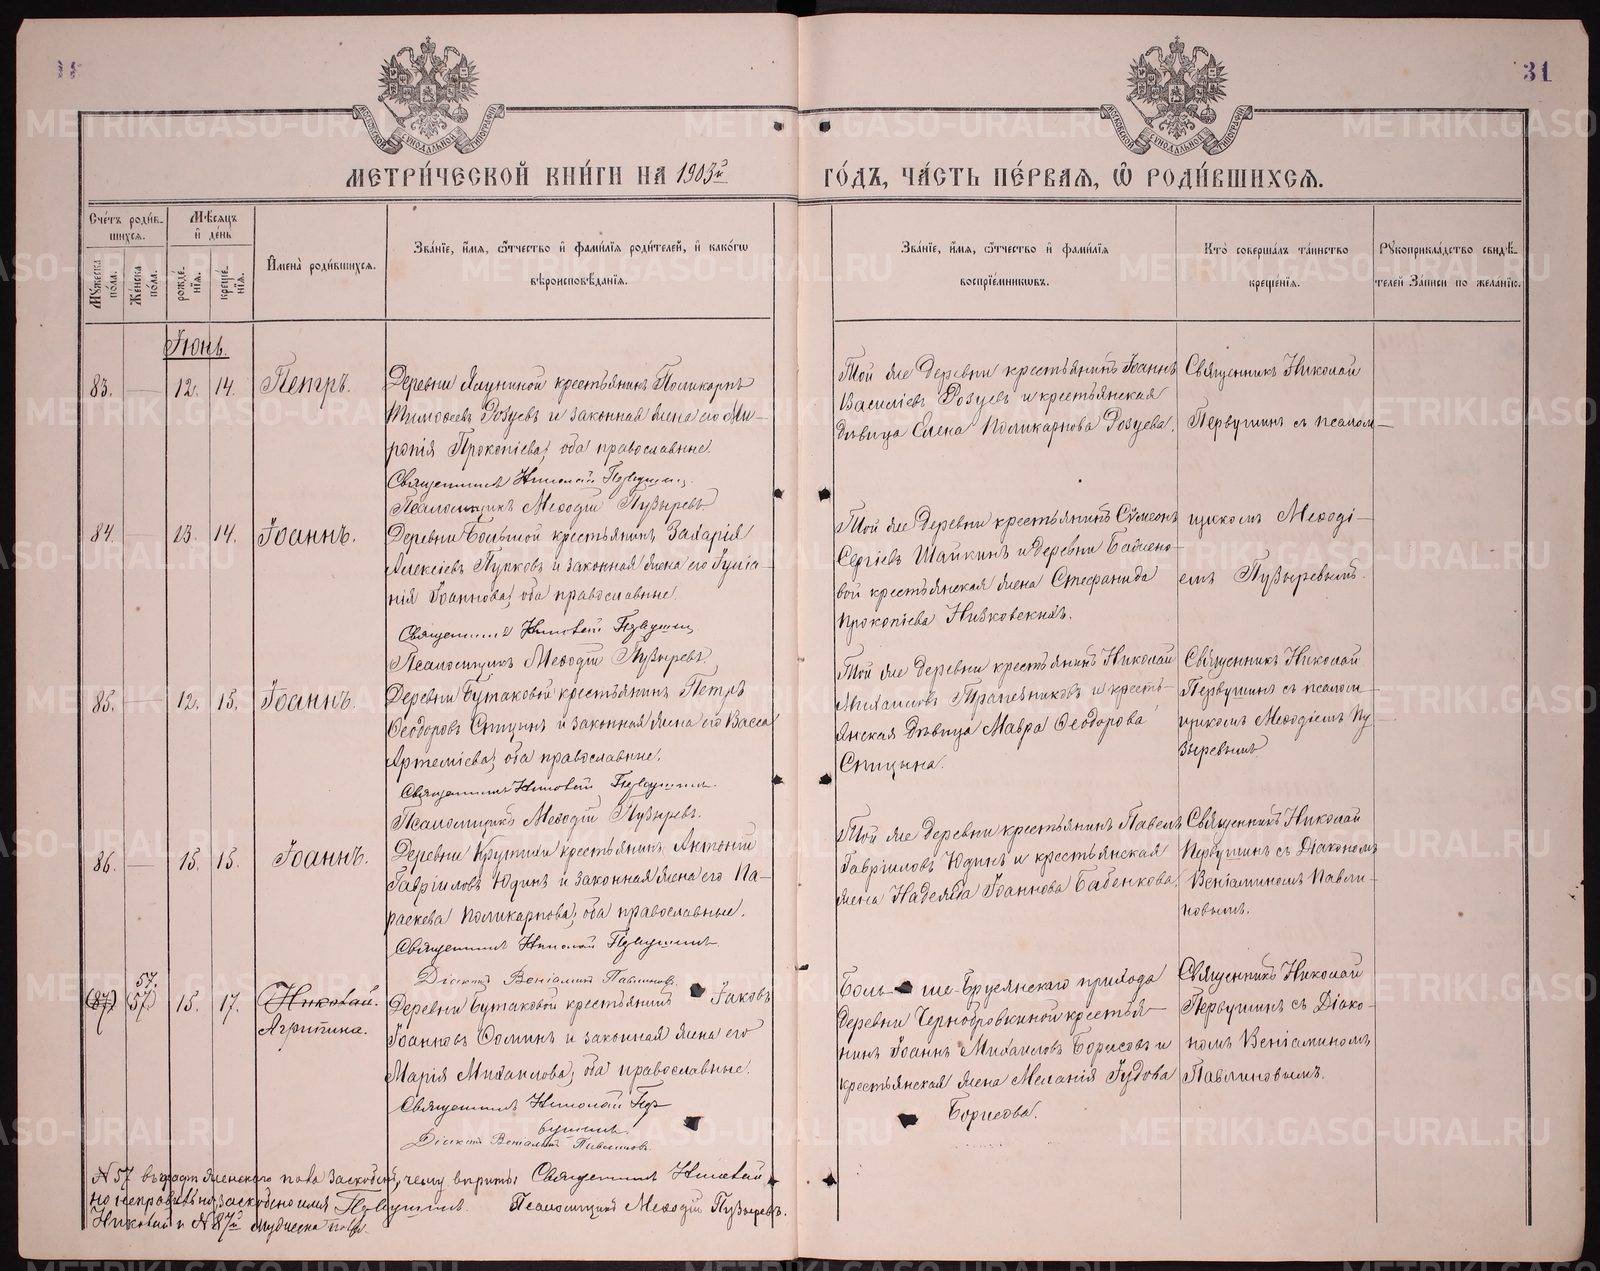 31
МЕТРИ́ЧЕСКОЙ КНИ́ГИ НА 1903й
ГО́ДЪ, ЧА́СТЬ ПЕ́РВАЯ, Ѡ РОДИ́ВШИХСЯ.
Сче́тъ роди́в-
шихся.
Му́жеска по́ла.
Же́нска по́ла.
Мѣ́сяцъ и де́нь
рожде́нія.
креще́нія.
И́мена роди́вшихся.
Зва́ніе, и́мя, ѻ҆́тчество и҆ фами́лія роди́телей, и҆ како́гѡ
вѣроисповѣ́данія.
Зва́ніе, и́мя, ѻ҆́тчество и҆ фами́лія
воспріе́мниковъ.
Кто̀ соверша́лъ та́инство
креще́нія.
Рꙋкоприкла́дство свидѣ́-
телей за́писи по жела́нію.
Іюнь.
83.
—
12.
14.
Петръ.
Деревни крестьянинъ Поликарпъ
Тимоѳеевъ Розуевъ и законная жена его Ми-
ропія Прокопіева; оба православные.
Священникъ Николай Первушинъ.
Псаломщикъ Меѳодій Пузыревъ
Той же деревни крестьянинъ Іоаннъ
Василіевъ Розуевъ и крестьянская
дѣвица Елена Поликарпова Розуева.
Священникъ Николай
Первушинъ съ псалом-
щикомъ Меѳоді-
емъ Пузыревымъ.
84.
—
13.
14.
Іоаннъ.
Деревни Большой крестьянинъ Захарія
Алексіевъ Пупковъ и законная жена его Іуліа-
нія Іоаннова; оба православные.
Священникъ Николай Первушинъ
Псаломщикъ Меѳодій Пузыревъ.
Той же деревни крестьянинъ Сѵмеонъ
Сергіевъ Шайкинъ и деревни
крестьянская жена Стефанида
Прокопіева Низковскихъ.
85.
—
12.
15.
Іоаннъ.
Деревни Бутаковой крестьянинъ Петръ
Ѳеодоровъ Спицынъ и законная жена его Васса
Артеміева; оба православные.
Священникъ Николай Первушинъ.
Псаломщикъ Меѳодій Пузыревъ.
Той же деревни крестьянинъ Николай
Михаиловъ Трапезниковъ и кресть-
янская дѣвица Мавра Ѳеодорова
Спицына.
Священникъ Николай
Первушинъ съ псалом-
щикомъ Меѳодіемъ Пу-
зыревымъ
86.
—
15.
15.
Іоаннъ.
Деревни Крутихи крестьянинъ Антоній
Гавріиловъ Юдинъ и законная жена его Па-
раскева Поликарпова; оба православные.
Священникъ Николай Первушинъ.
Діаконъ Веніаминъ Павлиновъ.
Той же деревни крестьянинъ Павелъ
Гавріиловъ Юдинъ и крестьянская
жена Надежда Іоаннова Бабенкова.
Священникъ Николай
Первушинъ съ Діакономъ
Веніаминомъ Павли-
новымъ.
(87)
57.
(57)
15.
17.
Николай.
Агрипина.
Деревни Бутаковой крестьянинъ Іаковъ
Іоанновъ Ѳоминъ и законная жена его
Марія Михаилова; оба православные.
Священникъ Николай Пер-
вушинъ.
Діаконъ Веніаминъ Павлиновъ.
Больше-Брусянскаго прихода
деревни Чернобровкиной крестья-
нинъ Іоаннъ Михаиловъ Борисовъ и
крестьянская жена Меланія Іудова
Борисова.
Священникъ Николай
Первушинъ съ Діако-
номъ Веніаминомъ
Павлиновымъ.
№ 57 въ графѣ женскаго пола Священникъ Николай
Первушинъ. Псаломщикъ Меѳодій Пузыревъ.
Николай и № 87й